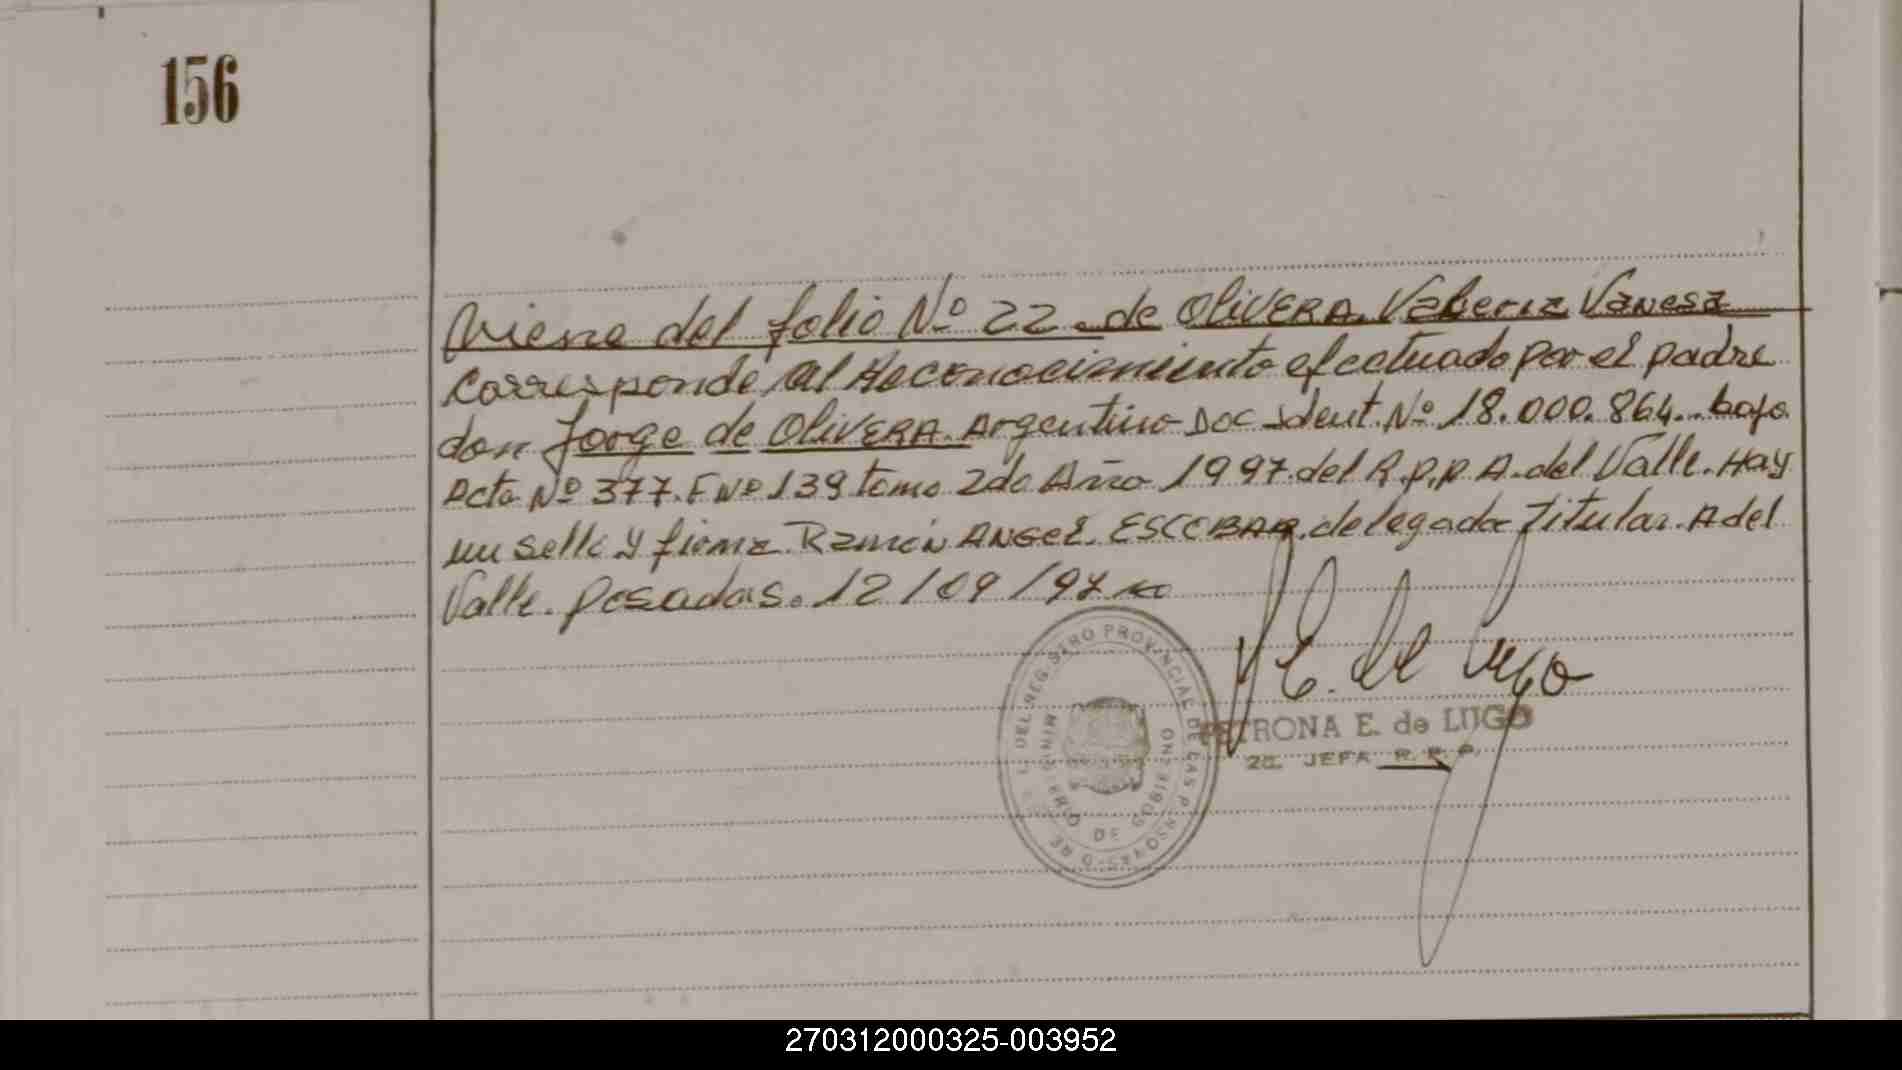 156
Viene del folio Nº 22 de OLIVERA, Valeria Vanesa
Corresponde al Reconocimiento efectuado por el padre
don Jorge de OLIVERA. Argentino Doc Ident. Nº 18.000.864.. bajo.
Acta Nº 377. F Nº 139 tomo 2do Año 1997. del R.P.P A. del Valle. Hay
un sello y firma Ramón ANGEL. ESCOBAR. delegado Titular. A del
Valle. Posadas. 12/09/97
DEL REGISTRO PROVINCIAL DE LAS PERSONAS
MINISTERIO DE GOBIERNO
PETRONA E. de LUGO
2a. JEFA R. P. P.
270312000325-003952